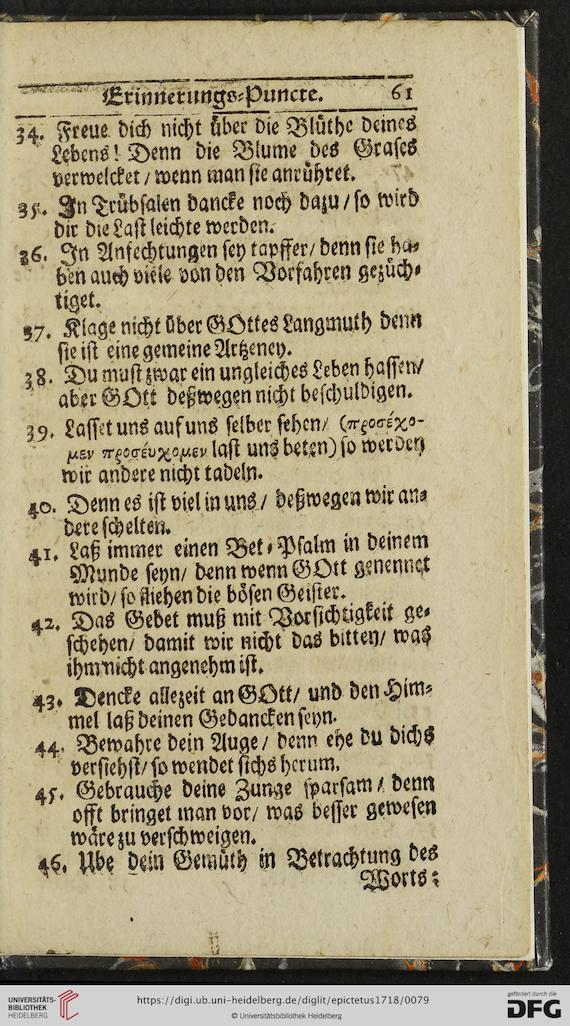 Erinnerungs-Puncte. 61
34. Freue dich nicht über die Blüthe deines
Lebens! Denn die Blume des Grases
verwelcket / wenn man sie anrühret.
35. In Trübsalen dancke noch dazu / so wird
dir die Last leichte werden.
36. In Anfechtungen sey tapffer / denn sie ha-
ben auch viele von den Vorfahren gezüch-
tiget.
37. Klage nicht über GOttes Langmuth denn
sie ist eine gemeine Artzeney.
38. Du must zwar ein ungleiches Leben hassen /
aber GOtt deßwegen nicht beschuldigen.
39. Lasset uns auf uns selber sehen / (προσέχο-
μεν προσέυχομεν last uns beten) so werden
wir andere nicht tadeln.
40. Denn es ist viel in uns / deßwegen wir an-
dere schelten.
41. Laß immer einen Bet-Psalm in deinem
Munde seyn / denn wenn GOtt genennet
wird / so fliehen die bösen Geister.
42. Das Gebet muß mit Vorsichtigkeit ge-
schehen / damit wir nicht das bitten / was
ihm nicht angenehm ist.
43. Dencke allezeit an GOtt / und den Him-
mel laß deinen Gedancken seyn.
44. Bewahre dein Auge / denn ehe du dichs
versiehst / so wendet sichs herum.
45. Gebrauche deine Zunge sparsam / denn
offt bringet man vor / was besser gewesen
wäre zu verschweigen.
46. Ube dein Gemüth in Betrachtung des
Worts:
UNIVERSITÄTS-
BIBLIOTHEK
HEIDELBERG
https://digi.ub.uni-heidelberg.de/diglit/epictetus1718/0079
© Universitätsbibliothek Heidelberg
gefördert durch die
DFG